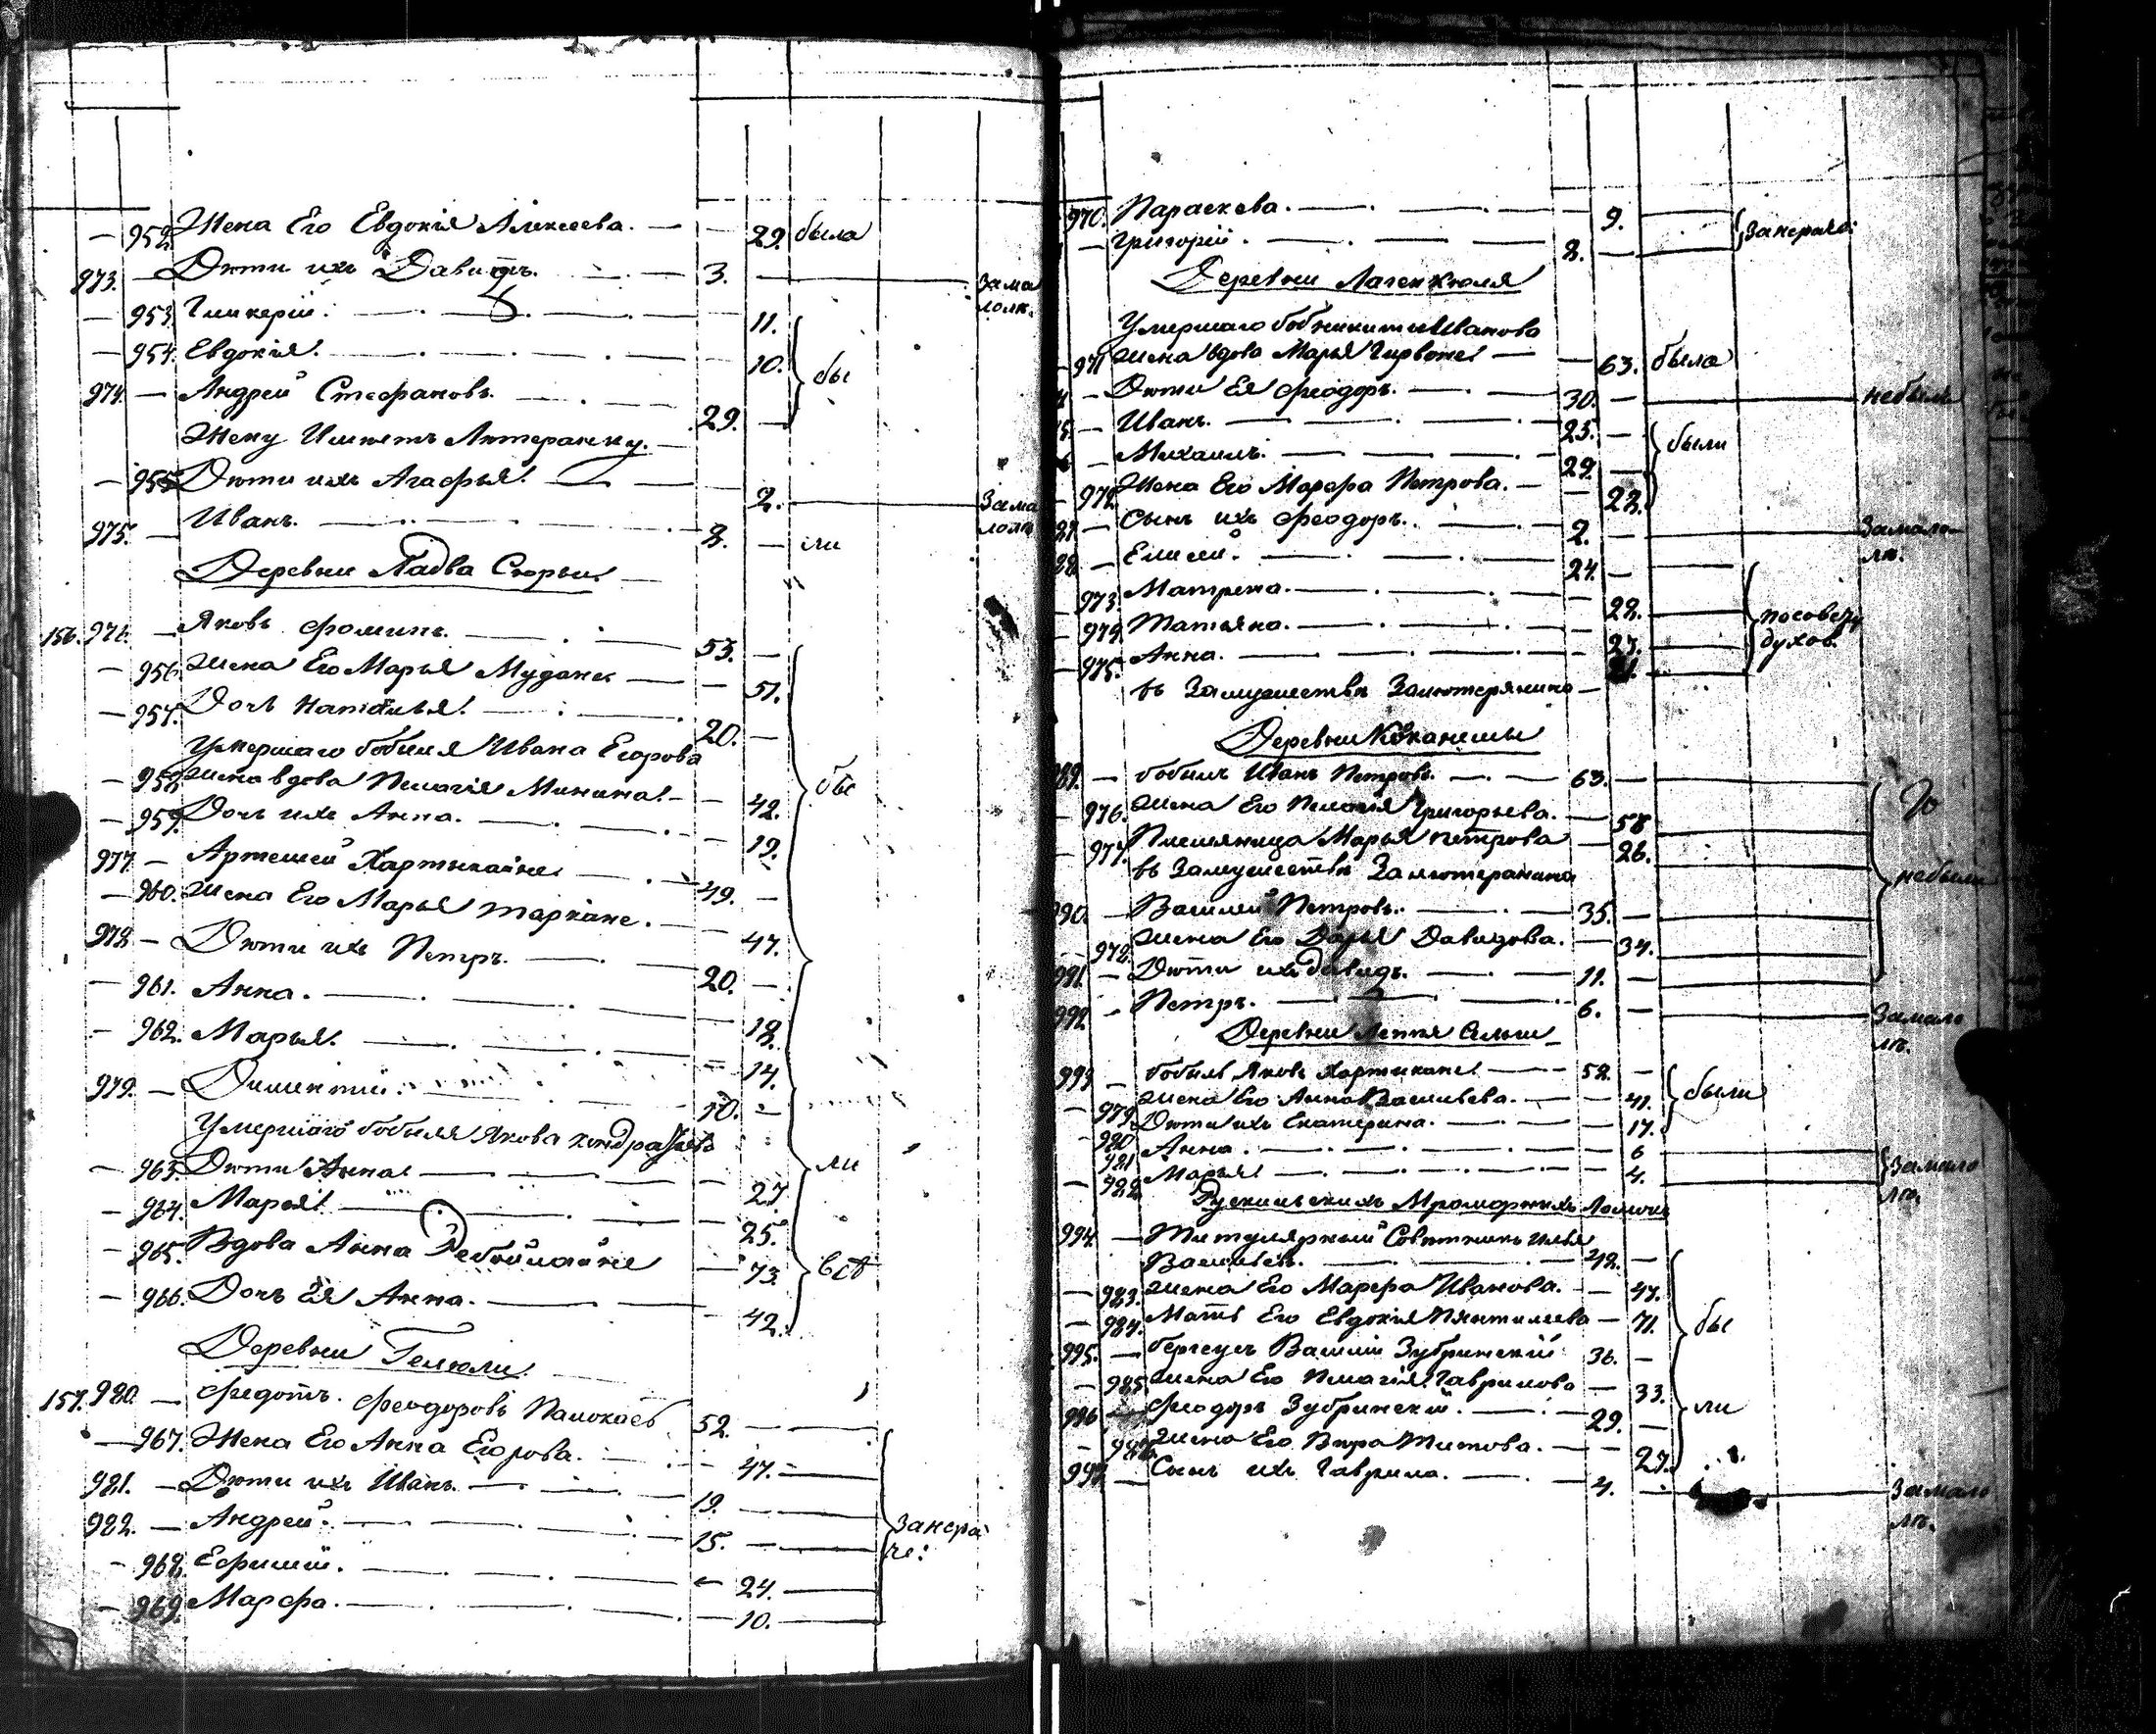 — 952. Жена Его Евдокія Алексеева. — — 29. была
973. — Дѣти ихъ Давидъ. — 3. — Зама
лолѣ.
— 953. Гликерій. — 11.
— 954. Евдокія. — 10. } бы
974. — Андрей Стефановъ. — 29. —
Жену Имѣетъ Лютеранку. —
— 955. Дѣти ихъ Агафья. — 2. — Зама
лолѣ
975. — Иванъ. — 8. — ли
Деревни Ладва Сюрьи
156. 976. — Яковъ Фоминъ. — 53. —
— 956. Жена Его Марья — 51.
— 957. Дочь Наталья. — 20. —
Умершаго бобыля Ивана Егорова
— 958. Жена вдова Пелагія Минина. — 42. } бы
— 959. Дочь ихъ Анна. — 19.
977. — Артемей — 49. —
— 960. Жена Его Марья — 47.
978. — Дѣти ихъ Петръ. — 20. —
— 961. Анна. — 18.
— 962. Марья. — 14.
979. — — 10. —
Умершаго бобыля Якова
— 963. Дѣти Анна — 27. ли
— 964. Марья — 25.
— 965. Вдова Анна — 73. всѣ
— 966. Дочь Ея Анна. — 42.
Деревни
157. 980. — Федотъ Феодоровъ — 52. —
— 967. Жена Его Анна Егорова. — 47. —
981. — Дѣти ихъ Иванъ. — 19. —
982. — Андрей. — 15. — } Занера
че:
— 968. — 24. —
— 969. Марфа. — 10. —
970. Параскева. — 9. —
— Григорій. — 8. — } Занерач:
Деревни
Умершаго Иванова
— 971 Жена вдова Марья — 63. была
— Дѣти Ея Феодоръ. — 30. — небылъ
— Иванъ. — 25. —
— Михаилъ. — 29. — } были
— 972. Жена Его Марфа Петрова. — 22.
— Сынъ ихъ Феодоръ. — 2. — Замало
лѣ.
— Елисей. — 24. —
— 973. Матрена. — 22. —
— 974. Татьяна. — 23. — } посовету
духов.
— 975. Анна. —
въ Замужествѣ Залютеряниномъ —
Деревни
— бобыль Иванъ Петровъ. — 63. —
— 976. Жена Его Пелагія Григорьева. — 58
— 977. Племяница Марья Петрова — 26.
въ Замужествѣ Залютеранина небыли
990. — Василей Петровъ. — 35. —
— 978. Жена Его Дарья Давидова. — 34.
991. — Дѣти ихъ Давидъ. — 11. —
992. — Петръ. — 6. — Замало
лѣ.
Деревни Леппя Сельги
993. — бобыль Яковъ — 52. —
— 979. Жена Его Анна Васильева. — 41. } были
— 980 Дѣти ихъ Екатерина. — 17.
981 Анна. — 6
— 982. Марья — 4. } Замало
лѣ.
Рускильскихъ Мраморныхъ Ломокъ
994. — Титулярный Совѣтникъ Илья
Васильевъ. — 42. —
— 983. Жена Его Марфа Иванова. — 47.
— 984. Мать Его Евдокія — 71. } бы
995. — Василій Зубринскій 36. —
— 985. Жена Его Пелагія Гаврилова — 33.
996 — Феодоръ Зубринскій. — 29. — ли
— 986. Жена Его Вѣра Титова. — 27.
997. — Сынъ ихъ Гаврила. — 4. — Замало
лѣ.